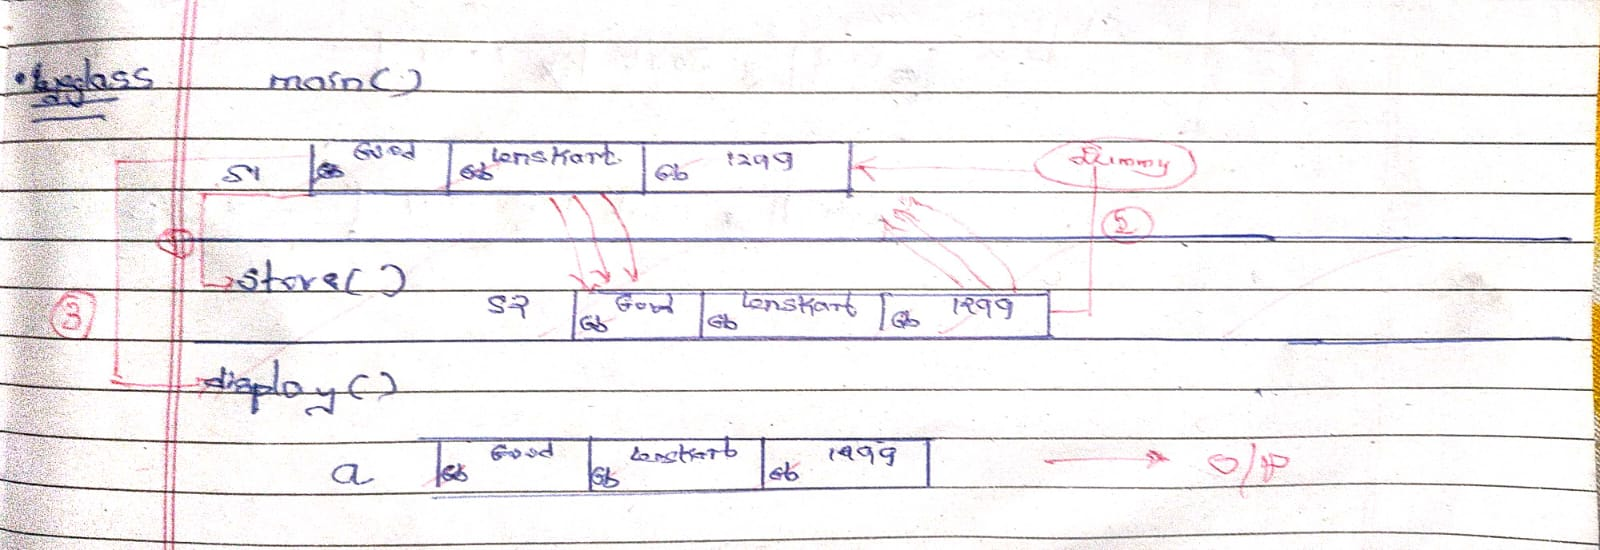 main()
S1 Gb Good Gb Lenskart Gb 1299 Dummy
1 2
store()
3 S2 Gb Good Gb Lenskart Gb 1299
display()
a Gb Good Gb Lenskart Gb 1299 O/P